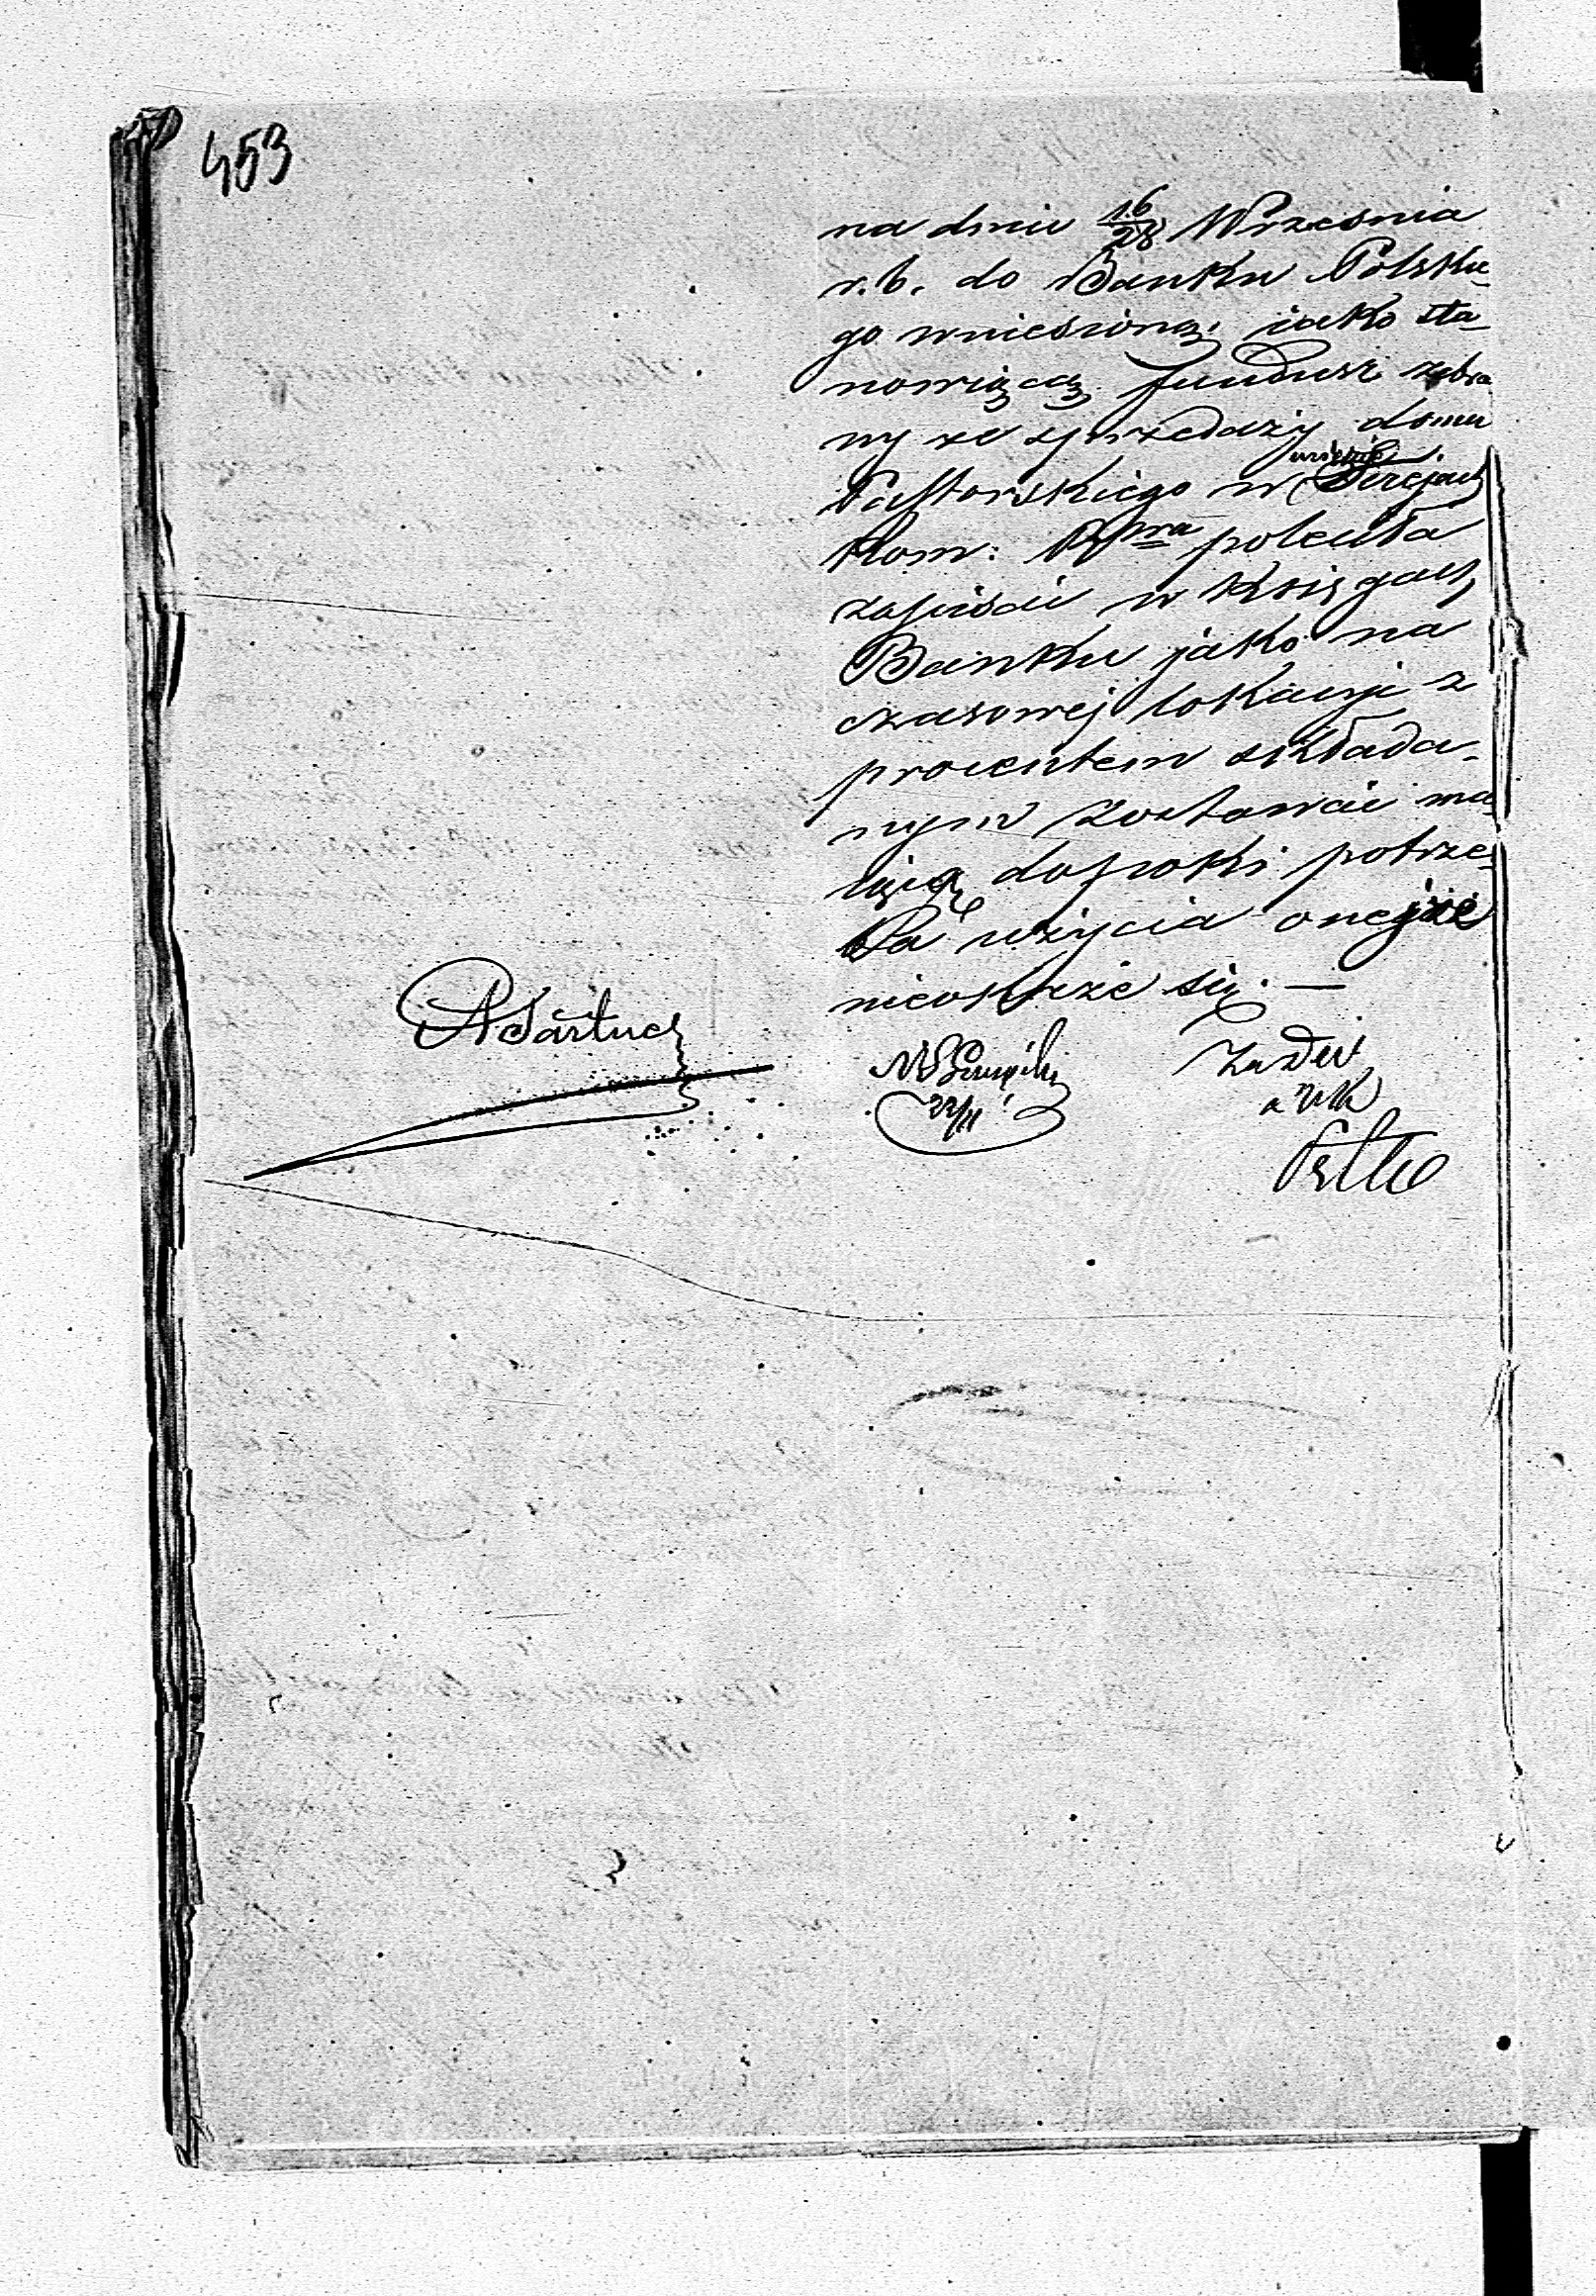 453
na dniu 16/28 Wrzesnia
r.b. do Banku Polskie-
go wniesioną, iako sta-
nowiącą fundusz zebra
ny ze sprzedaży domu
Pastorskiego w mieście Serejach
Kom: Rz pra poleciła
zapisać w Księgach
Banku jako na
czasowej lokacyi z
procentem składa-
nym zostawać ma-
iącą dopoki potrze-
ba użycia onejże
nieokaże się. —
22/11